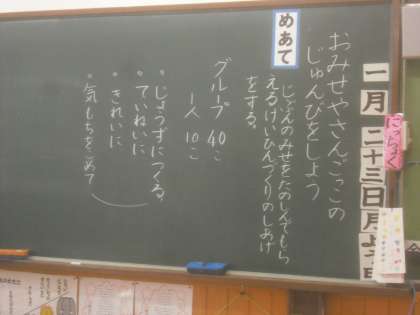 一月二十三日月よう日
にっちょく
おみせやさんごっこの
じゅんびをしよう
めあて
じぶんのみせをたのしんでもら
えるけいひんづくりのしあげ
をする。
グループ 40こ
一人 10こ
・じょうずにつくる。
・ていねいに
・きれいに
・気もちをこめて